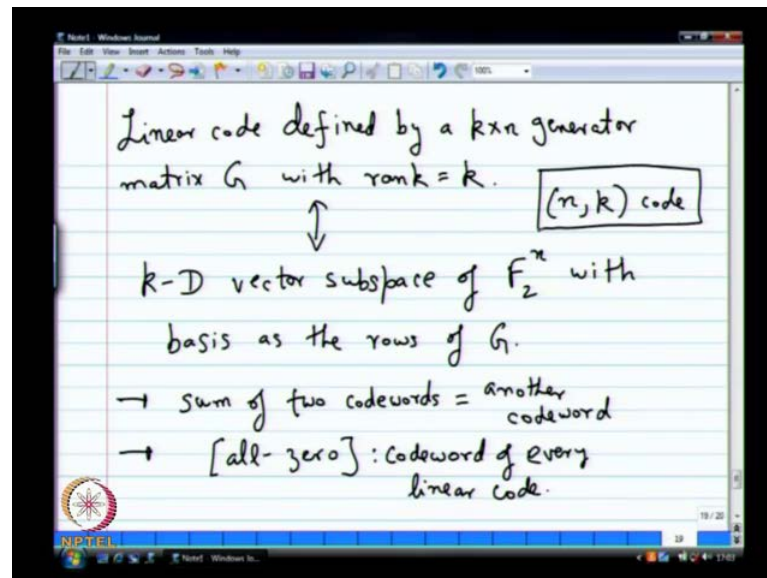 Note1 - Windows Journal
File Edit View Insert Actions Tools Help
100%
Linear code defined by a k×n generator
matrix G with rank = k.
(n, k) code
k-D vector subspace of F₂ⁿ with
basis as the rows of G.
→ sum of two codewords = another codeword
→ [all-zero] : codeword of every
linear code.
19/20
19
NPTEL
Note1 - Windows Jo...
1703